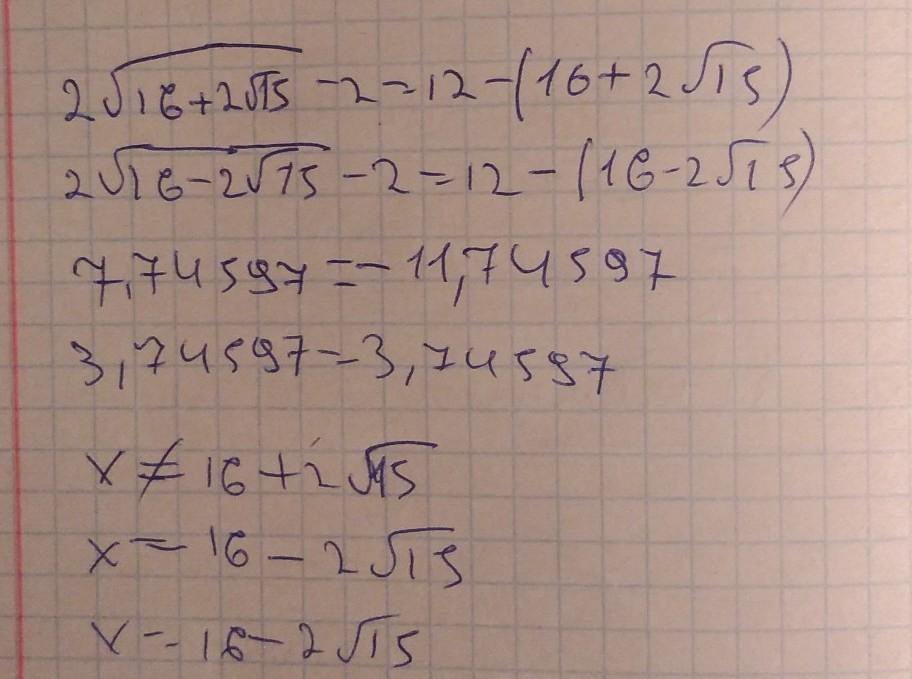 2√(16+2√15) -2=12-(16+2√15)
2√(16-2√15) -2=12-(16-2√15)
7,74597=-11,74597
3,74597=3,74597
x≠16+2√15
x=16-2√15
x=16-2√15